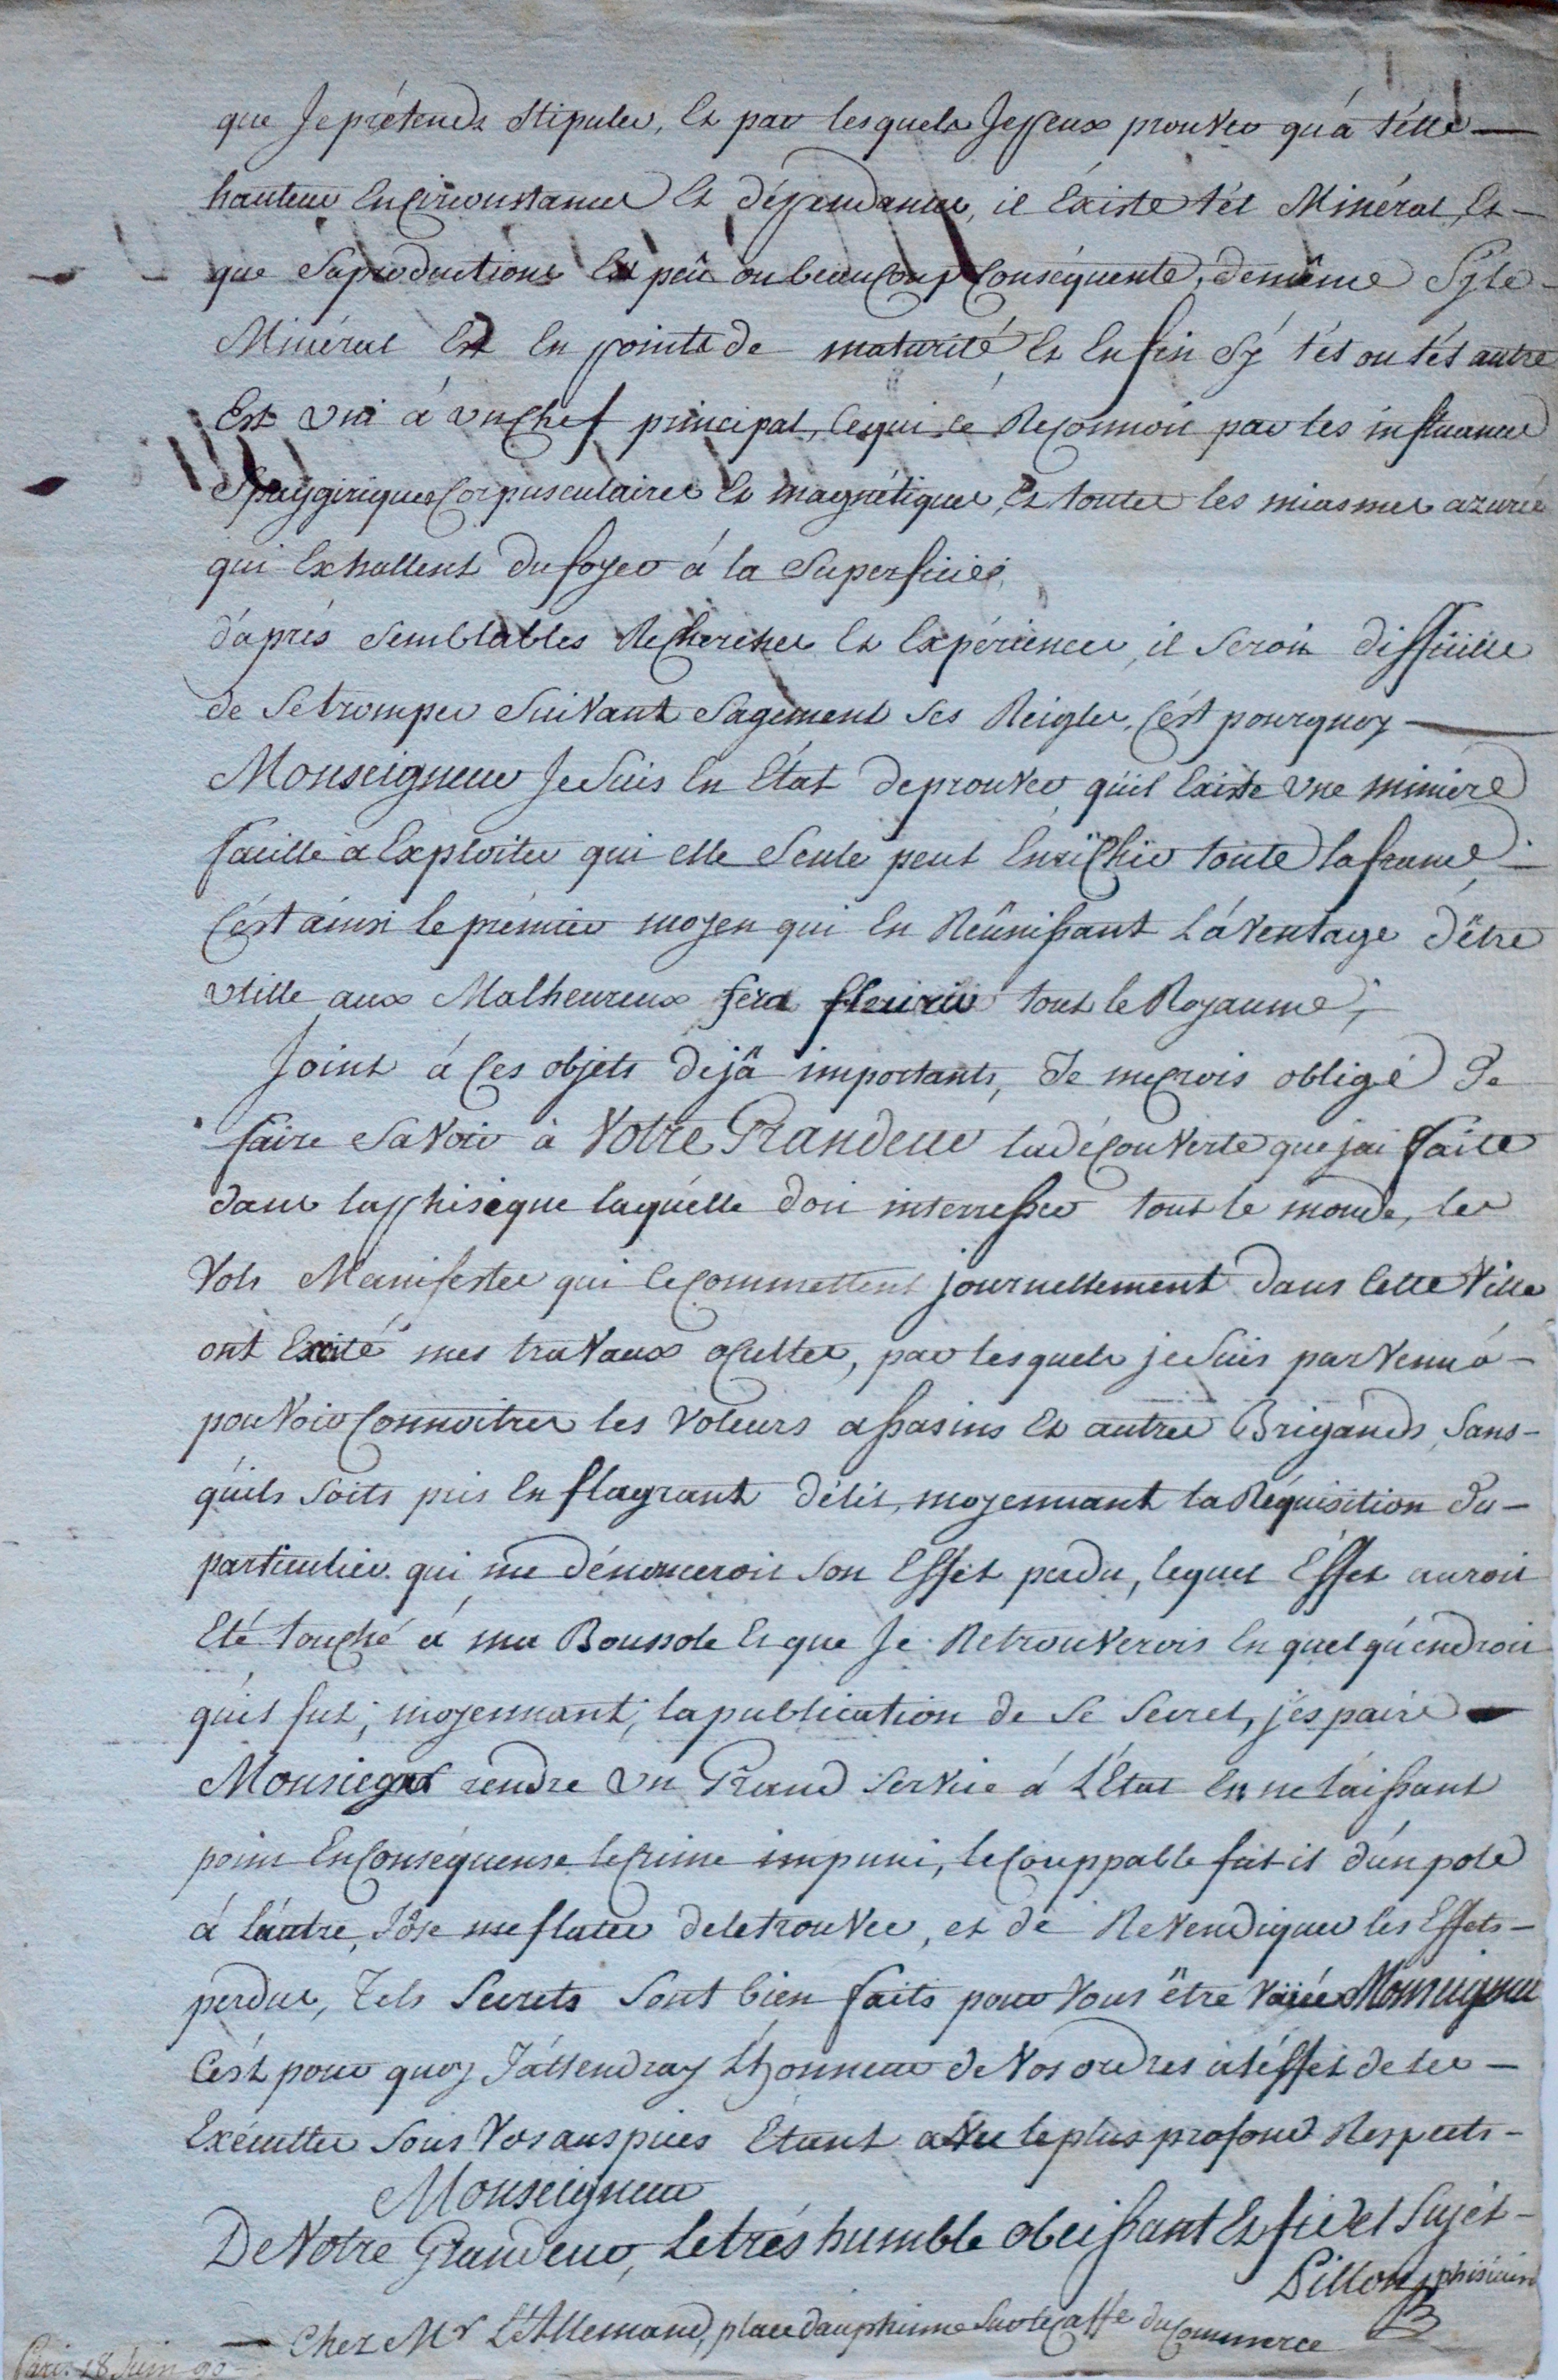 que Je prétends Stipuler, Et par lesquels Je peux prouver qu'á télle
hauteur En Circonstances Et dépendances, il Éxiste tél Minéral, Et
que Sa production Est peû ou beaucoup Conséquente, de même Sy le
Minéral Est En point de maturité, Et Enfin Sy tél ou tél autre
Est Uni á Un Chef principal, Ce qui Cé Reconnoit par les influances
Spaygiriques Corpusculaires Et magnétiques, Et toutes les miasmes azurée
qui Exhallent du foyer á la Superficiée,
d'áprés Semblables Recherches Et Expériences, il Seroit difficille
de Se tromper Suivant Sagement Ses Reigles, C'ést pourquoy
Monseigneur Je Suis En Etat de prouver qu'il Existe Une miniére
facille a Exploiter qui elle Seule peut Enrichir toute la france
C'ést ainsi le prémier moyen qui En Réûnissant L'áventage d'être
Utille aux Malheureux fera fleurir tout le Royaume,
Joint á Ces objets dejâ importants, Je me Crois obligé de
faire Savoir à Votre Grandeur la déCouverte que jai faite
dans la phisique laquélle doit interresser tout le monde, les
Vols Manifestes qui Ce Commettent journellement dans Cette Ville
ont Excité mes travaux oCultes, par lesquels je Suis parvenu á
pouvoir Connoitres les Voleurs assasins Et autres Brigands, Sans
qu'ils Soits pris En flagrant délit, moyennant la Réquisition du
particulier qui me dénonceroit Son Effét perdu, lequel Effet auroit
Eté touché á ma Boussole Et que Je Retrouverois En quel qu'éndroit
qu'il fut; moyennant, la publication de Se Secret, j'éspaire
Monsiegnr rendre Un Grand Service á L'Etat En ne laissant
point En Conséquense le Crime impuni, le Couppable fut-il d'ún pole
á l'áutre, J'ôse me flater de le trouver, et de Revendiquer les Effets
perdus, Tels Secrets Sont bien faits pour Vous être Voüée Monseigneur
C'ést pour quoy J'áttendray L'honneur de Vos ordres á l'éffet de les
Exécutter Sous Vos auspices Etant avec le plus profond Respects
Monseigneur
De Votre Grandeur, Le trés humble obeissant Et fidel Sujét
Lillon phisicien
Chez Mr L'Allemand, place dauphinne Sur le Caffé du Commerce
Paris 28 Juin 90